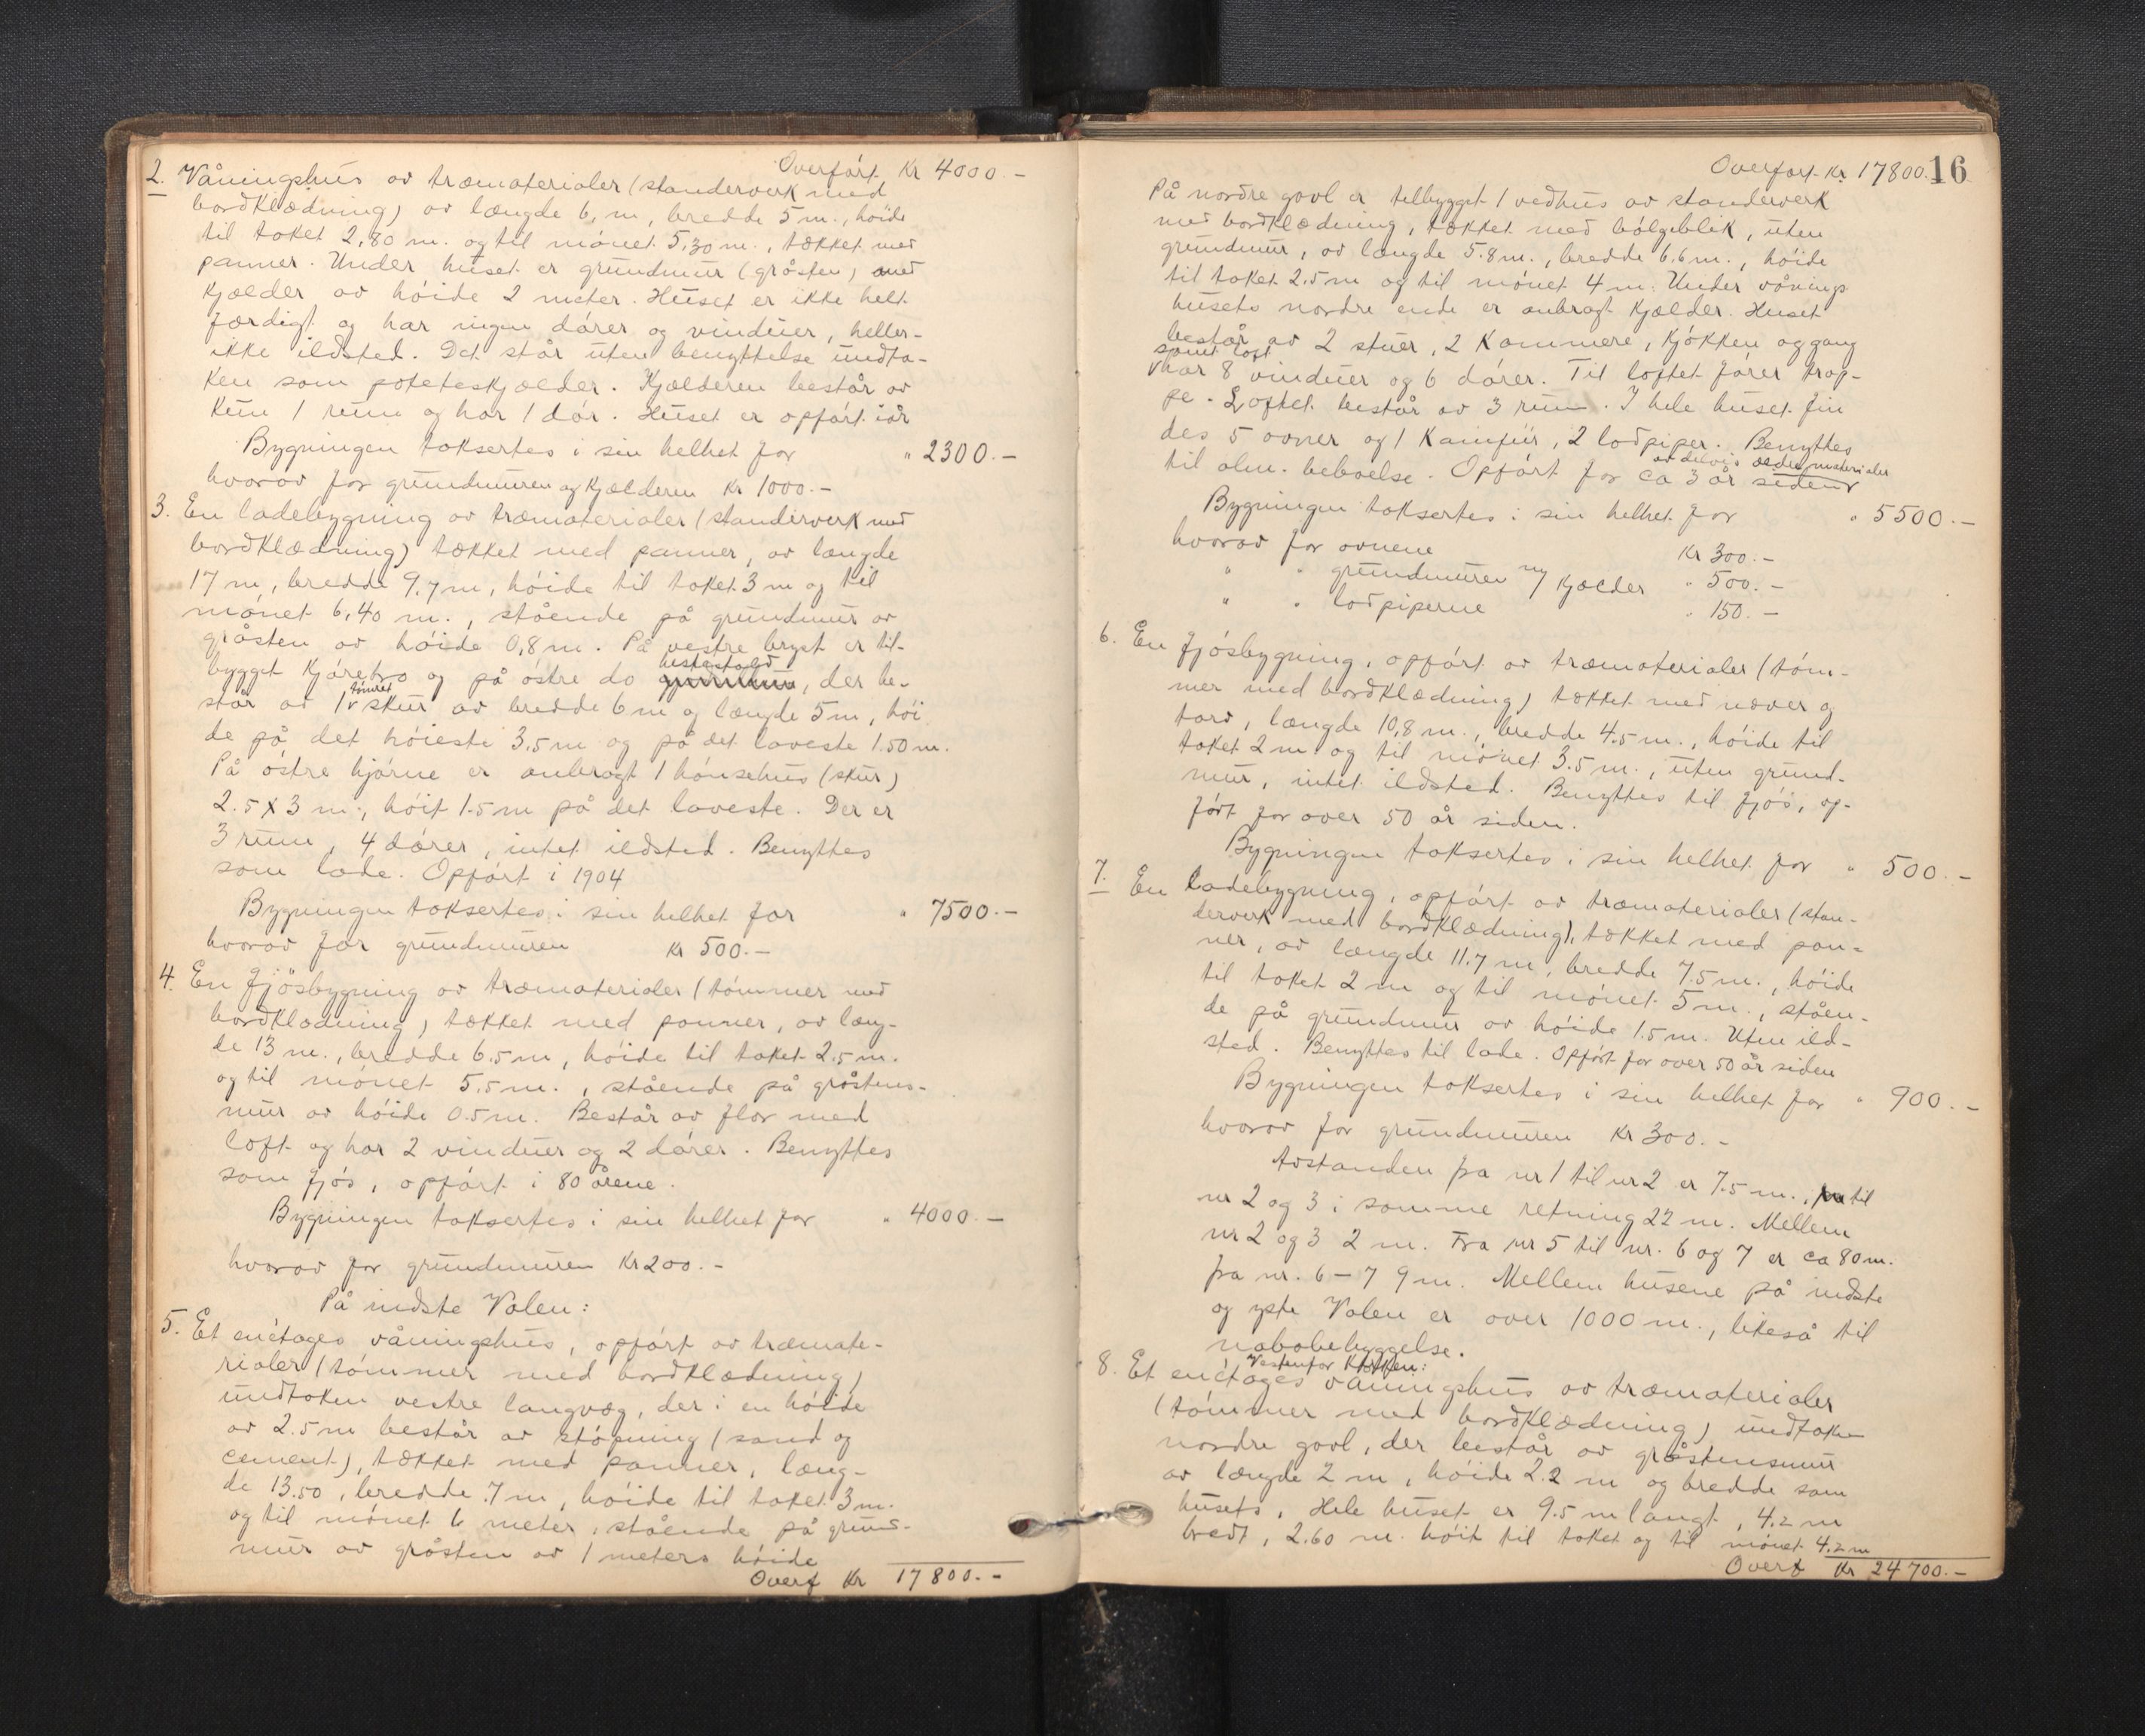 Overført Kr 4000.-
2. Våningshus av træmaterialer (standerverk med
bordklædning) av længde 6, m, bredde 5 m., høide
til taket 2,80 m. og til mønet 5,30 m., tækket med
panner. Under huset er grundmur (gråsten) med
kjælder av høide 2 meter. Huset er ikke helt
færdigt og har ingen dører og vinduer, heller-
ikke ildsted. Det står uten benyttelse undta-
ken som poteteskjælder. Kjælderen består av
kun 1 rum og har 1 dør. Huset er opført iår
Bygningen taksertes i sin helhet for " 2300.-
hvorav for grundmuren og kjælderen Kr 1000.-
3. En ladebygning av træmaterialer (standerverk med
bordklædning) tækket med panner, av længde
17 m, bredde 9,7 m, høide til taket 3 m og til
mønet 6,40 m., stående på grundmur av
gråsten av høide 0,8 m. På vestre bryst er til-
bygget kjørebro og på østre do hestestald, der be-
står av 1 tømret skur av bredde 6 m og længde 5 m, høi
de på det høieste 3,5 m og på det laveste 1.50 m.
På østre hjørne er anbragt 1 hønsehus (skur)
2.5 x 3 m., høit 1.5 m på det laveste. Der er
3 rum, 4 dører, intet ildsted. Benyttes
som lade. Opført i 1904
Bygningen taksertes i sin helhet for " 7500.-
hvorav for grundmuren Kr 500.-
4. En fjøsbygning av træmaterialer (tømmer med
bordklædning) tækket med panner, av læng-
de 13 m., bredde 6.5 m, høide til taket 2.5 m.
og til mønet 5,5 m., stående på gråstens-
mur av høide 0.5 m. Består av flor med
loft og har 2 vinduer og 2 dører. Benyttes
som fjøs, opført i 80 årene.
Bygningen taksertes i sin helhet for " 4000.-
hvorav for grundmuren Kr 200.-
På indste Valen:
5. Et enetages våningshus, opført av træmate-
rialer (tømmer med bordklædning)
undtaken vestre langvæg, der i en høide
av 2.5 m består av støpning (sand og
cement), tækket med panner, læng-
de 13.50, bredde 7 m, høide til taket 3 m.
og til mønet 6 meter, stående på grund-
mur av gråsten av 1 meters høide
Overf Kr 17800.-
Overført Kr. 17800. 16
På nordre gavl er tilbygget 1 vedhus av standerverk
med bordklædning, tækket med bølgeblik, uten
grundmur, av længde 5.8 m., bredde 6.6 m., høide
til taket 2.5 m og til mønet 4 m. Under vånings
husets nordre ende er anbragt kjælder. Huset
består av 2 stuer, 2 kammere, kjøkken og gang
samt loft
har 8 vinduer og 6 dører. Til loftet fører trap-
pe. Loftet består av 3 rum. I hele huset fin
des 5 ovner og 1 kamfur, 2 lodpiper. Benyttes
av delvis ældre materialer
til alm. beboelse. Opført for ca 3 år siden
Bygningen taksertes i sin helhet for " 5500.-
hvorav for ovnene Kr 300.-
" " grundmuren m/ kjælder " 500.-
" " lodpiperne " 150.-
6. En fjøsbygning, opført av træmaterialer (tøm-
mer med bordklædning) tækket med næver og
torv, længde 10,8 m., bredde 4.5 m., høide til
taket 2 m og til mønet 3.5 m., uten grund-
mur, intet ildsted. Benyttes til fjøs, op-
ført for over 50 år siden.
Bygningen taksertes i sin helhet for " 500.-
7. En ladebygning, opført av træmaterialer (stan-
derverk med bordklædning), tækket med pan-
ner, av længde 11.7 m, bredde 7.5 m., høide
til taket 2 m og til mønet 5 m., ståen-
de på grundmur av høide 1.5 m. Uten ild-
sted. Benyttes til lade. Opført for over 50 år siden
Bygningen taksertes i sin helhet for " 900.-
hvorav for grundmuren Kr 300.-
Avstanden fra nr 1 til nr 2 er 7.5 m., til
nr 2 og 3 i samme retning 22 m. Mellem
nr 2 og 3 2 m. Fra nr 5 til nr. 6 og 7 er ca 80 m.
fra nr. 6 - 7 9 m. Mellem husene på indste
og yste Valen er over 1000 m., likeså til
nabobebyggelse.
Vestenfor Kirken:
8. Et enetages våningshus av træmaterialer
(tømmer med bordklædning) undtaken
nordre gavl, der består av gråstensmur
av længde 2 m, høide 2.2 m og bredde som
husets. Hele huset er 9.5 m langt, 4.2 m
bredt, 2.60 m. høit til taket og til mønet 4.2 m
Overf Kr 24700.-